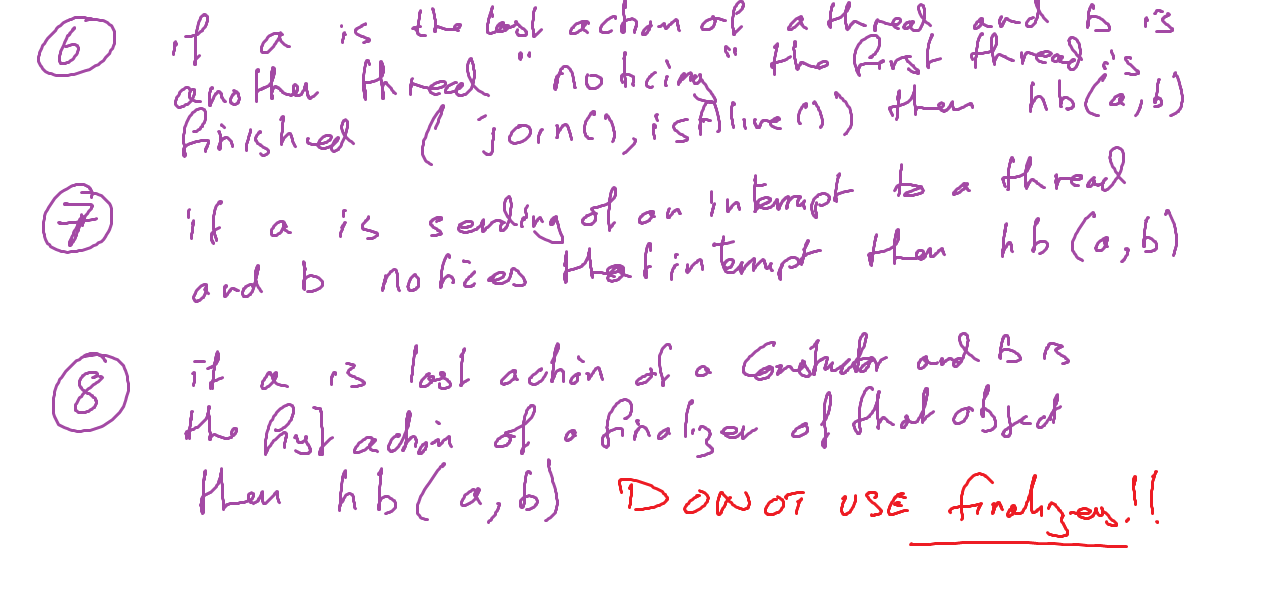 ⑥ if a is the last action of a thread and b is
another thread "noticing" the first thread is
finished ( join(), isAlive() ) then hb(a,b)
⑦ if a is sending of an interrupt to a thread
and b notices that interrupt then hb(a,b)
⑧ if a is last action of a Constuctor and b is
the first action of a finalizer of that object
then hb(a,b) DO NOT USE finalizers!!